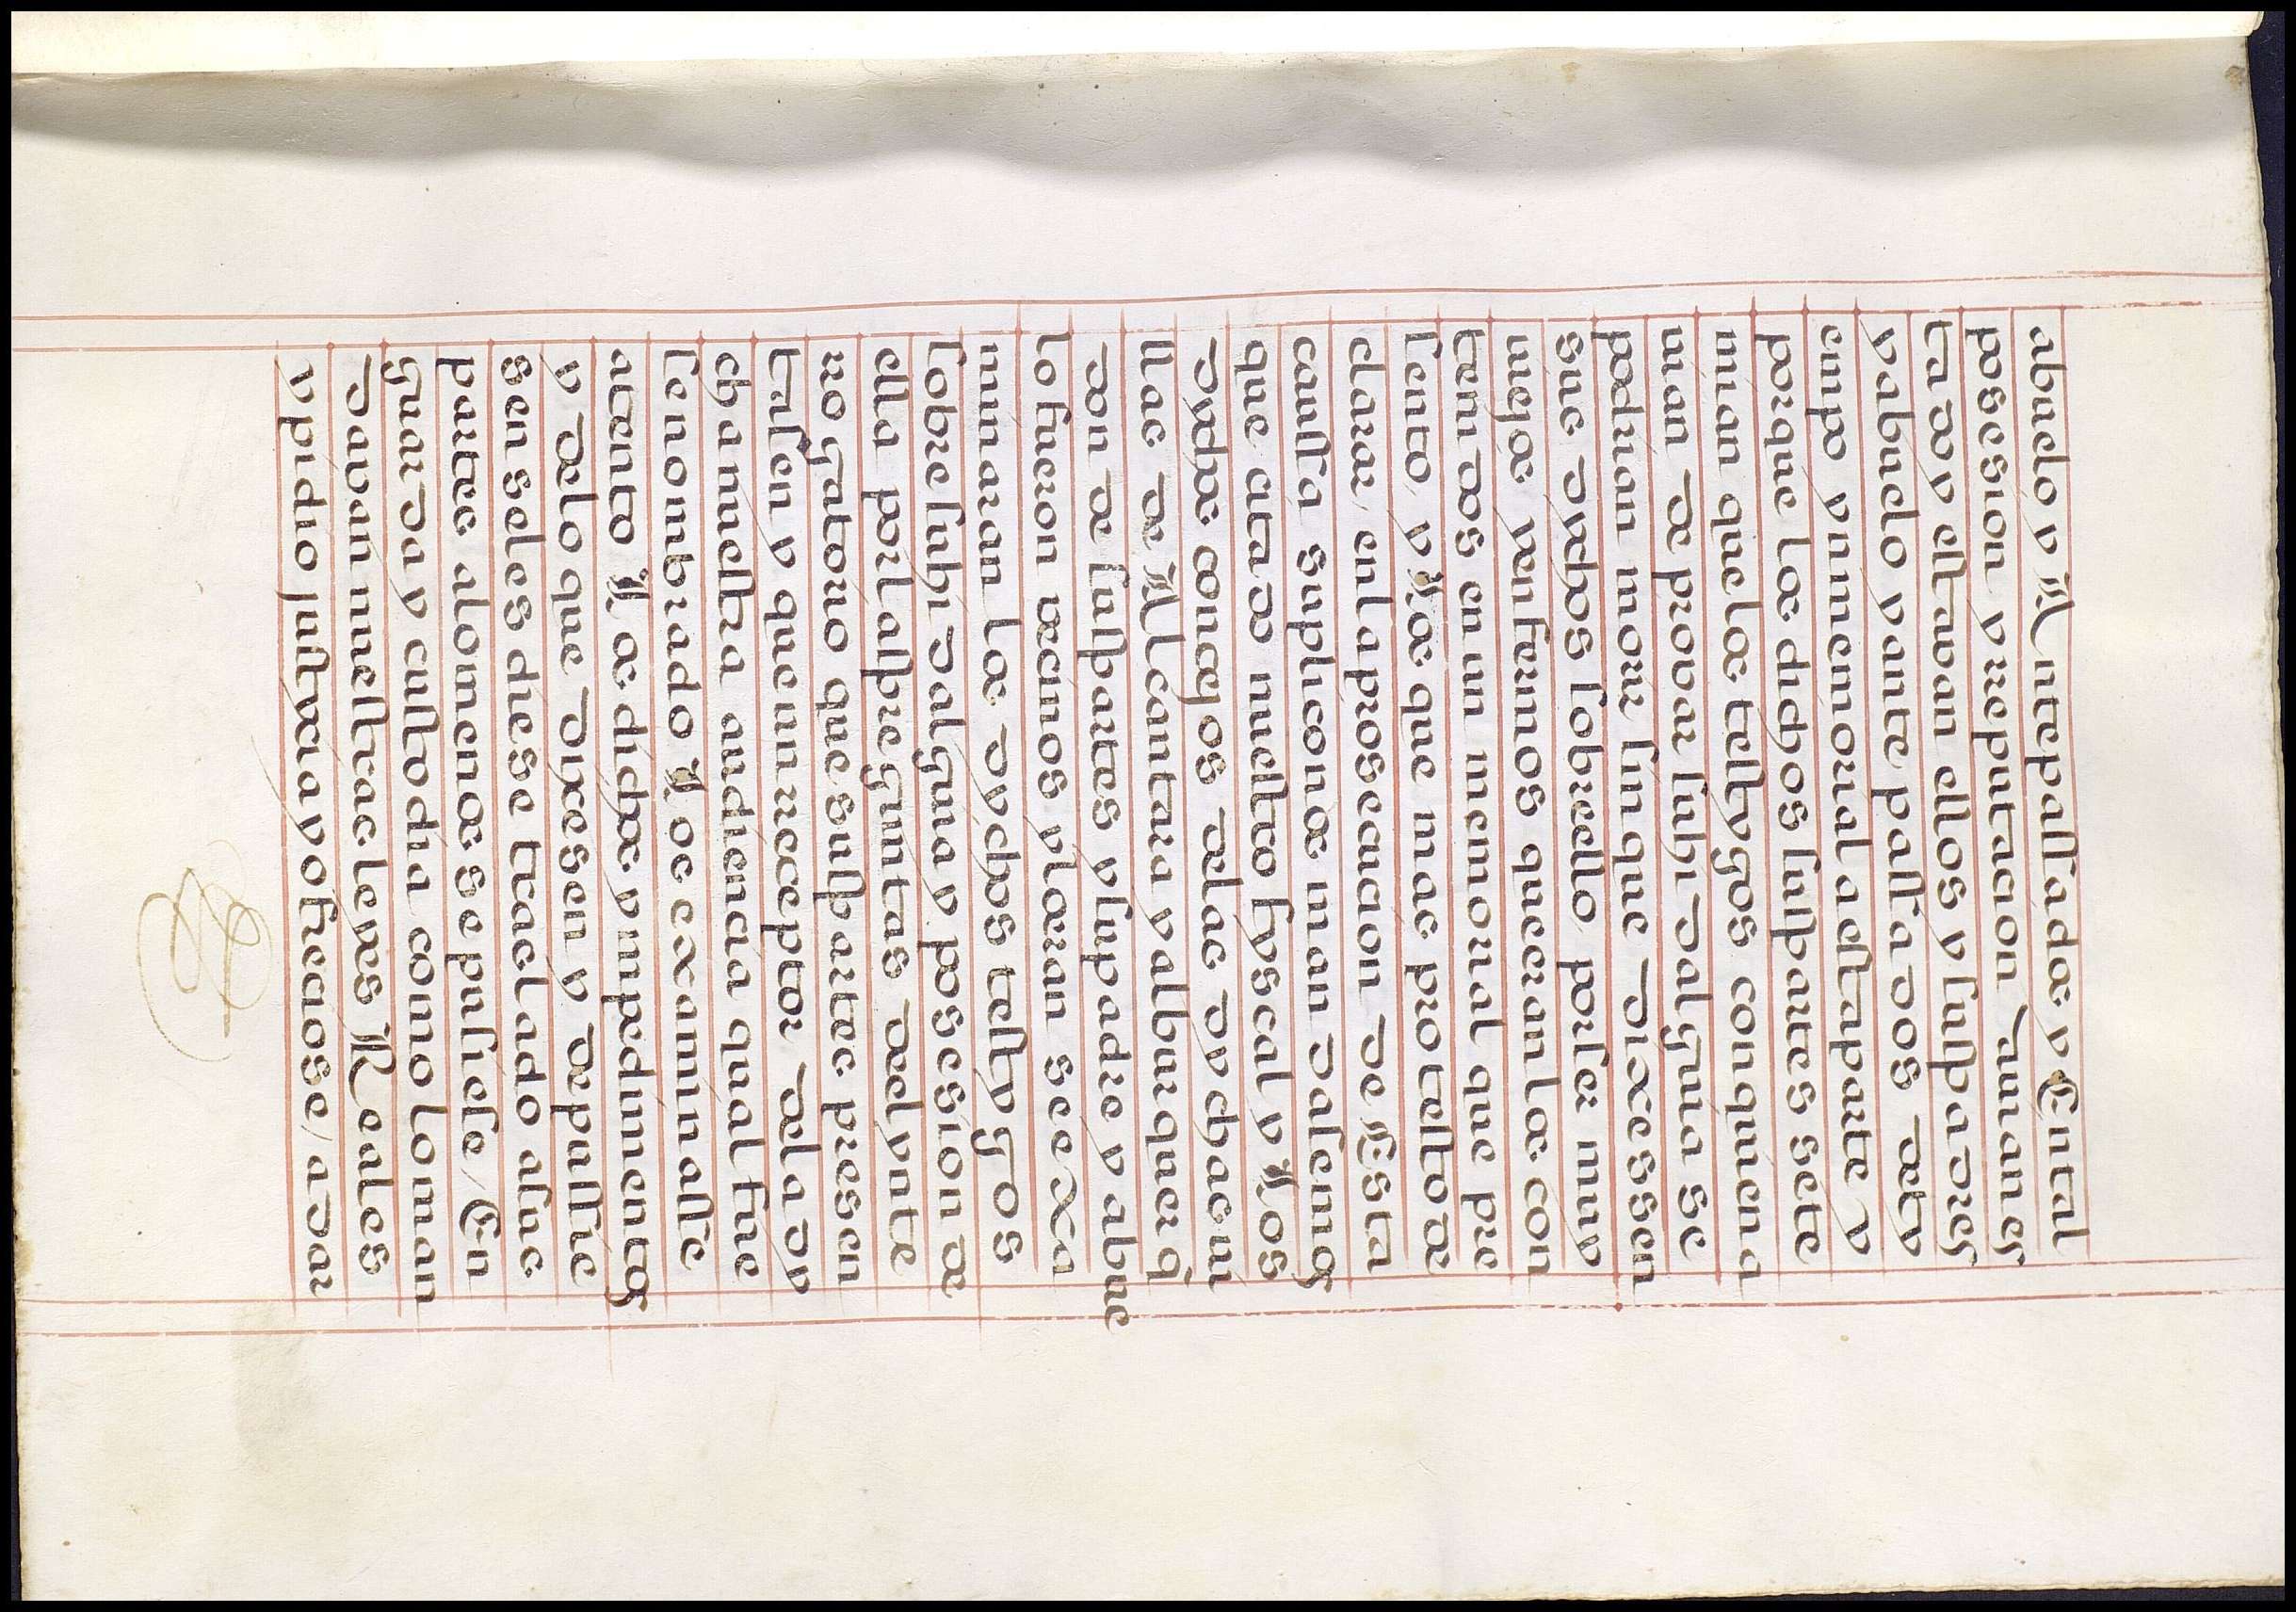 abuelo y Antepassados y En tal
posesion y reputacion Auian es
tado y estauan ellos y sus padres
y abuelo y ante passados de ty
empo ynmemorial a esta parte y
porque los dichos sus partes sete
mian que los testygos con quien a
uian de prouar su hidalguia se
podrian morir sin que dixessen
sus dychos sobre ello por ser muy
uiejos y enfermos que eran los con
tenidos en un memorial que pre
sento y los que mas protesto de
clarar, en la prosecucion de Esta
caussa suplico nos man dasemos
que citado nuestro fyscal y Los
dychos conçejos de las dychas ui
llas de Alcantara y alburquerq̄
don de sus partes y su padre y abue
lo fueron vecinos y byeran se exa
minaran los dychos testygos
sobre su hidalguia y posesion de
ella por las preguntas del ynte
rrogatorio que sus partes presen
tasen y que un rreceptor de la dy
cha nuestra audiencia qual fue
se nombrado Los examinasse
atento Los dichos ympedimentos
y de lo que dixesen y depussie
sen se les diese traslado a sus
partes a lo menos se pusiese, En
guarda y custodia como lo man
dauan nuestras leyes Reales
y pidio justicia y ofreciose, a dar